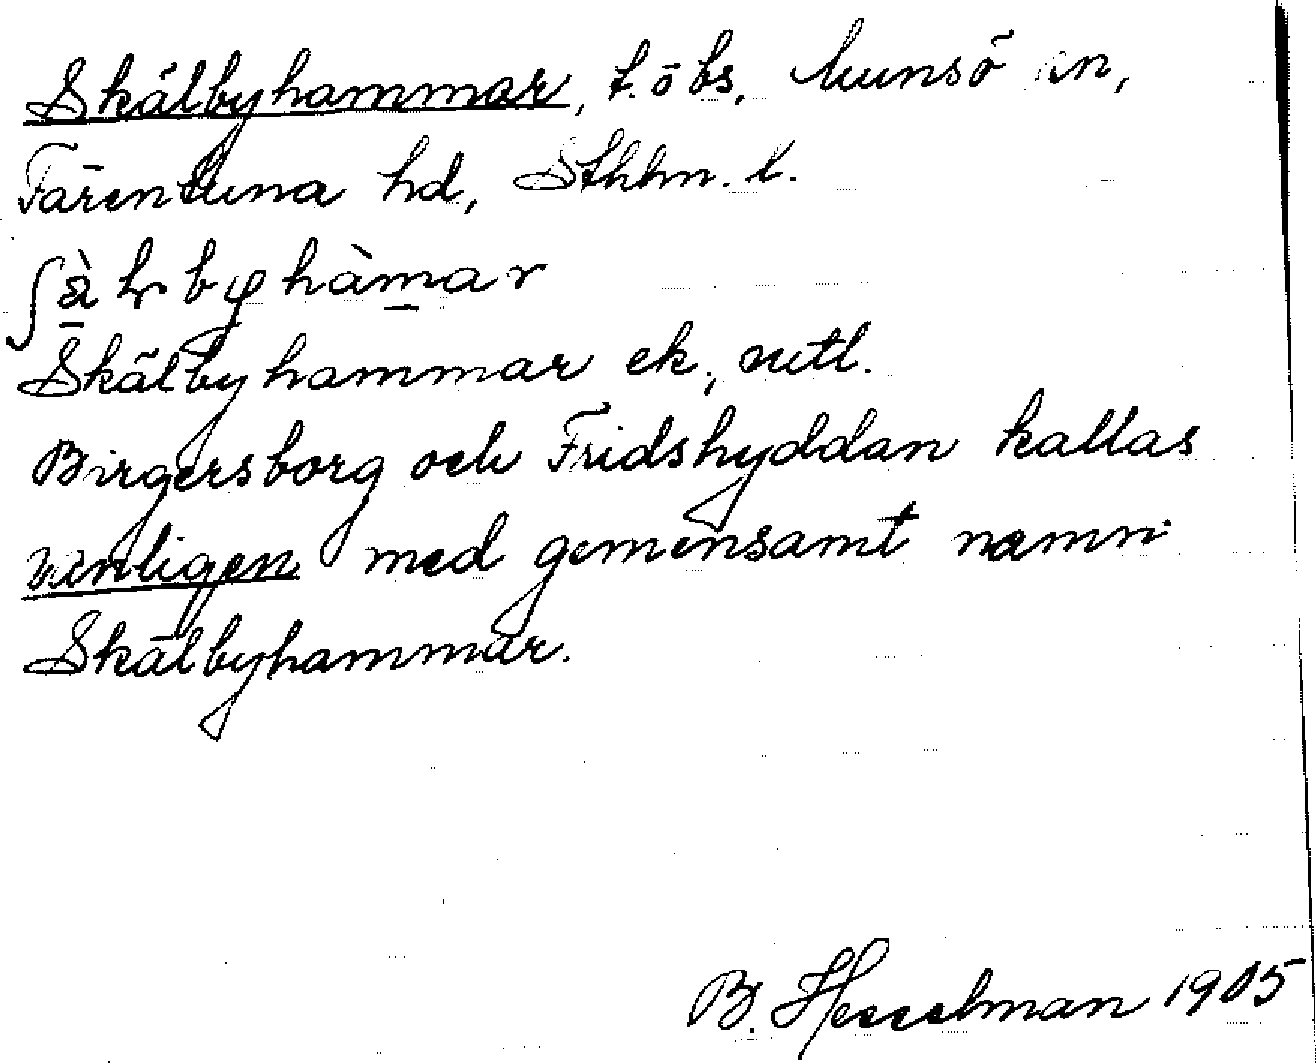 Skälbyhammar, t. o bs. Munsö sn,
Färentuna hd, Sthlm. l.
Skälbyhammar ek,
Birgersborg och Fridshyddan kallas
vanligen med gemensamt namn
Skälbyhammar.
B. Hesselman 1905